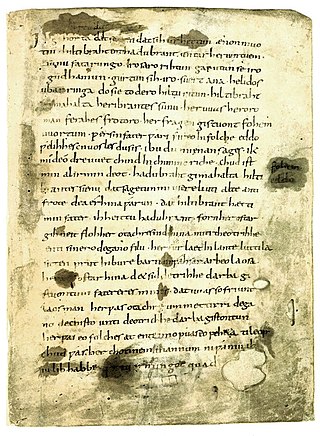 Ik gihorta dat seggen dat sih urhettun ænon muo
tin. hiltibraht enti hadubrant. untar heriun tuem.
sunu fatarungo. iro saro rihtun garutun se iro
gudhamun. gurtun sih. iro. suert ana. helidos
ubar ringa do sie to dero hiltu ritun. hiltibraht
gimahalta heribrantes sunu. her uuas heroro
man ferahes frotoro. her fragen gistuont fohem
uuortum. ƿer sin fater ƿari fireo In folche eddo
ƿelihhes cnuosles du sis. ibu du mi enan sages. ik
mi de odre uuet chind In chunincriche. chud ist
min al irmin deot. hadubraht gimahalta hilti
brantes sunu dat sagetun mi usere liuti alte anti
frote dea erhina ƿarun. dat hiltibrant hætti
min fater. ih heittu hadubrant. forn her ostar
gihueit floh her otachres nid hina miti theotrihhe
enti sinero degano filu. her furlaet In lante luttila
sitten prut In bure barn unƿahsan arbeo laosa.
her raet ostar hina des sid detrihhe darba gi
stuontun fatereres mines. dat uuas so friunt
laos man her ƿas otachre ummet tirri dega
no dechisto unti deotrichhe darba gistontun
her ƿas eo folches at ente imo ƿas eo feheta ti leop
chud ƿas her chonnem mannum ni ƿaniu ih
iu lib habbe irmingot quad